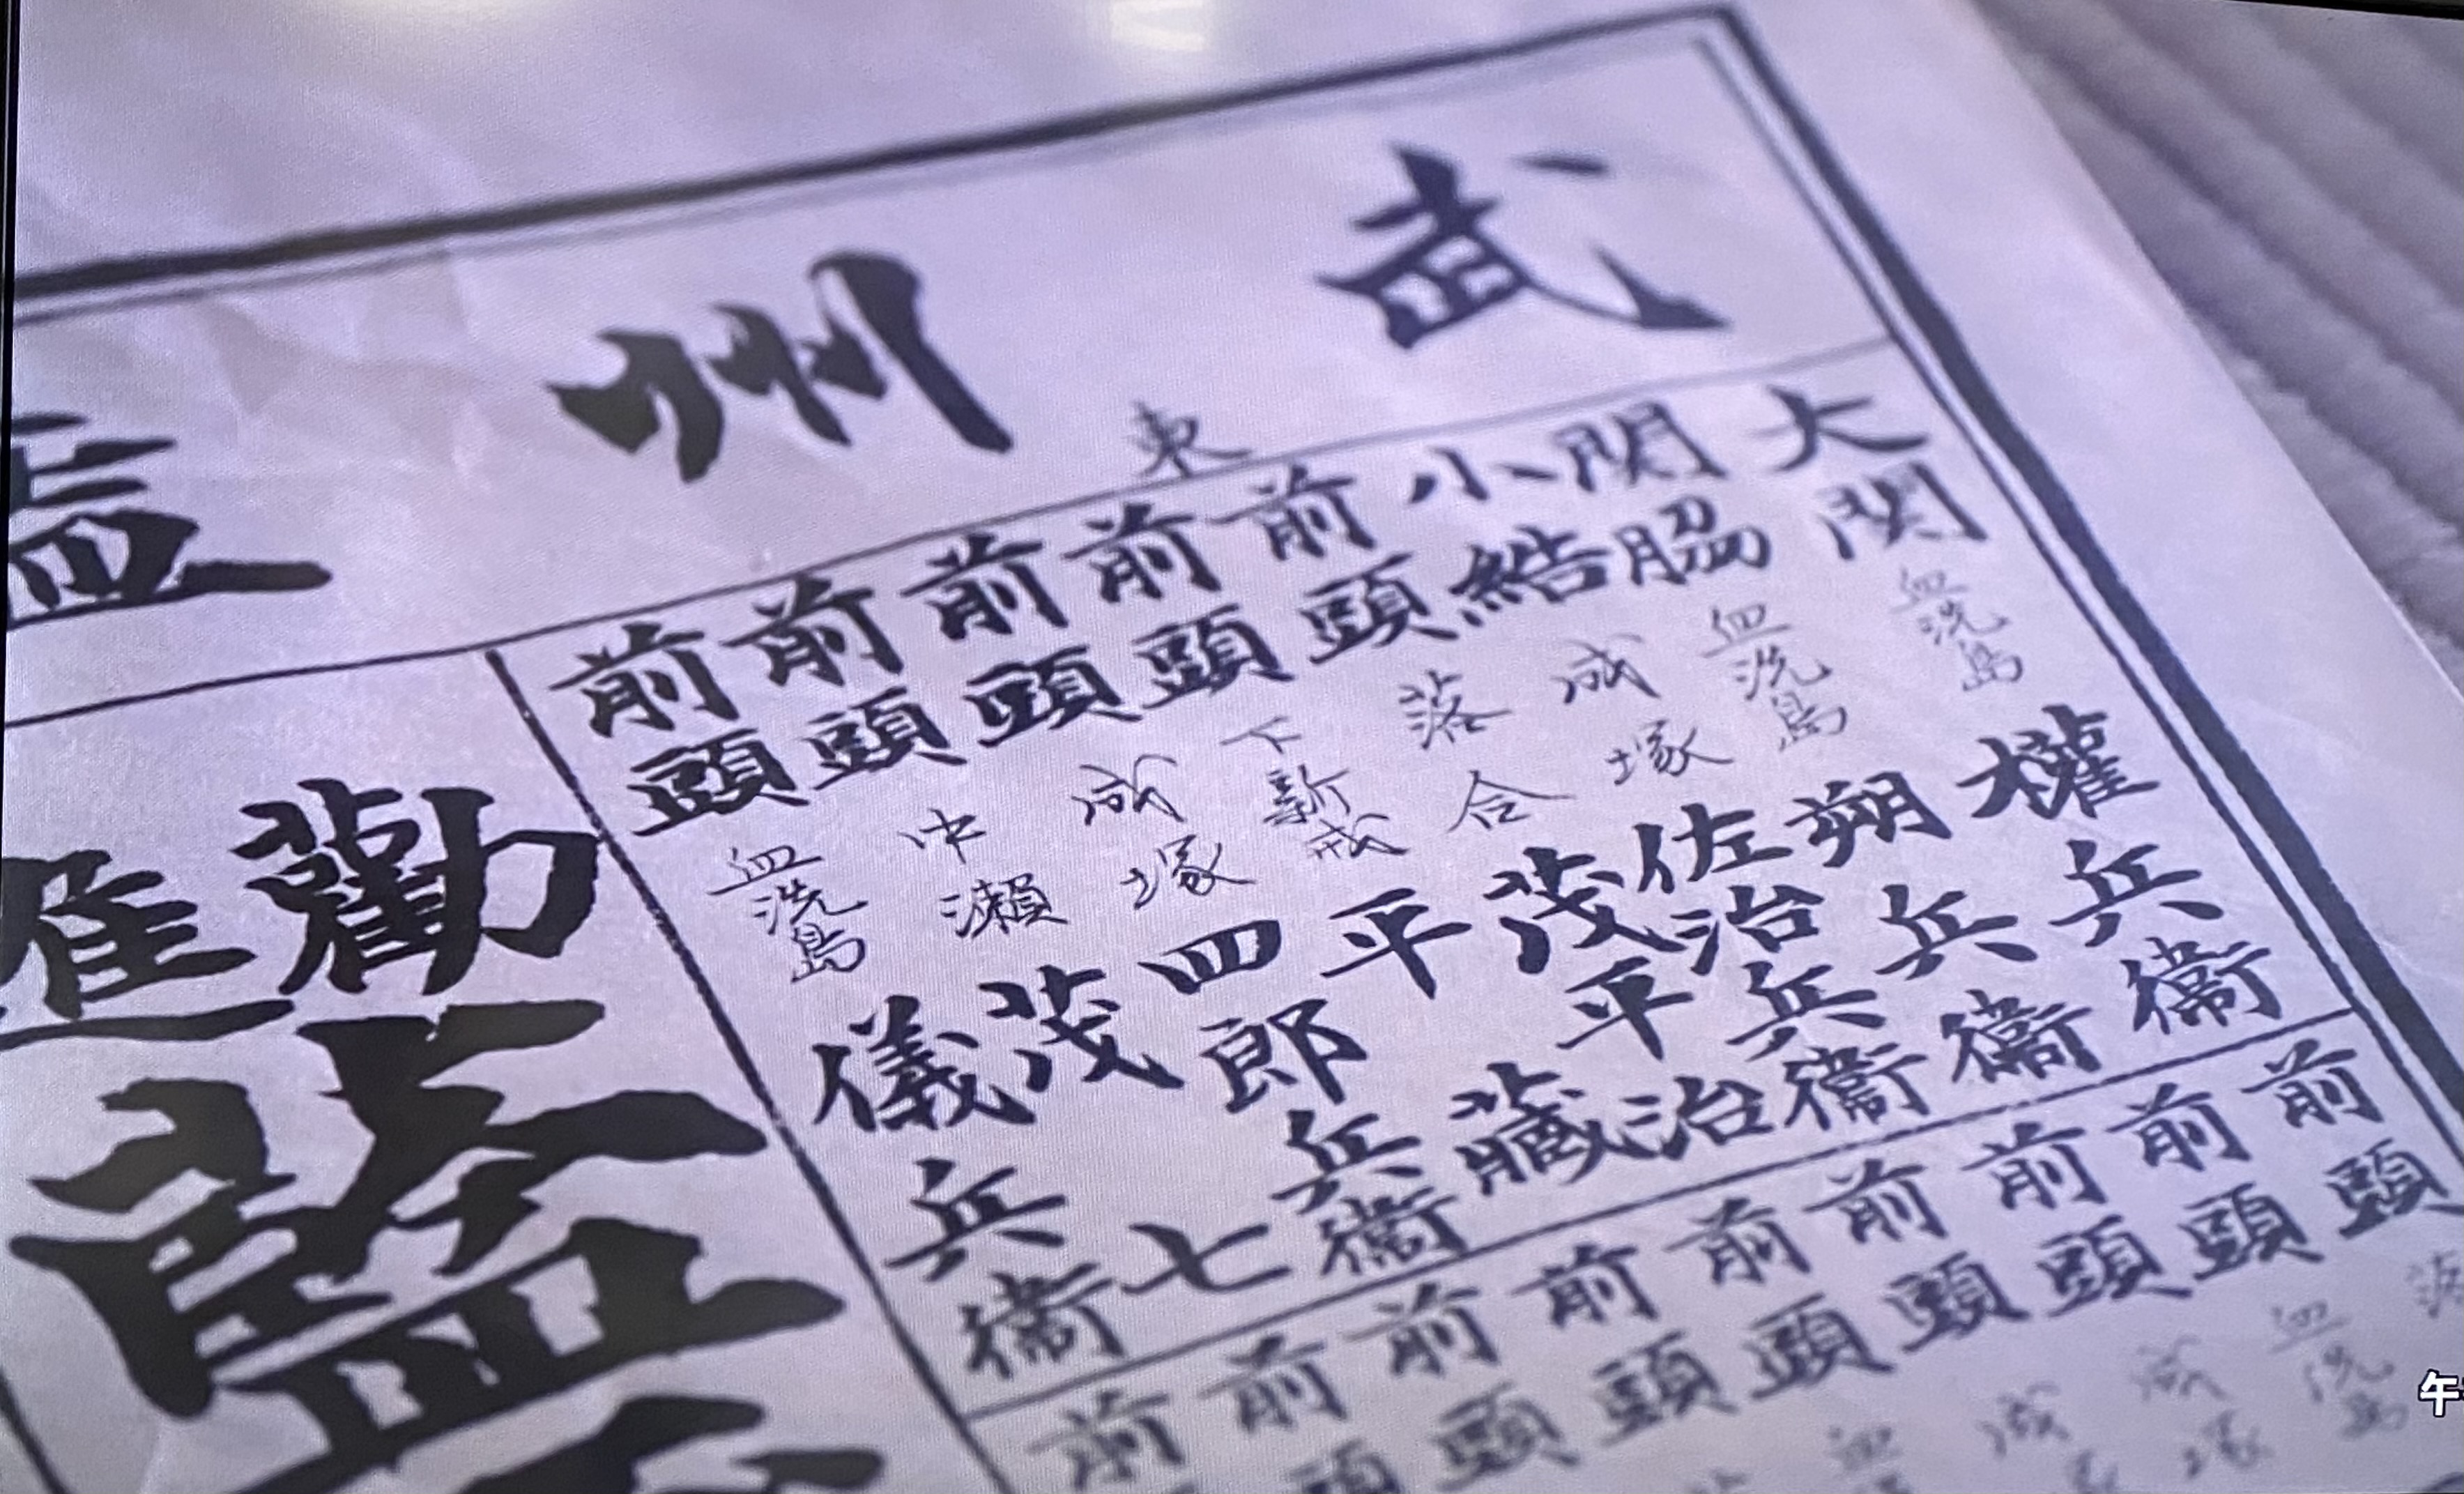 武州
東
大関 血洗島 權兵衞
関脇 血洗島 朔兵衞
小結 成塚 佐治兵衞
前頭 落合 茂平治
前頭 下新戒 平藏
前頭 成塚 四郎兵衞
前頭 中瀬 茂七
前頭 血洗島 儀兵衞
前頭
前頭 血洗島
前頭 成塚
前頭
前頭
前頭
前頭
前頭
前
勸進
藍
午